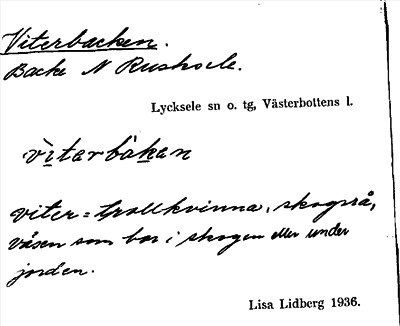 Viterbacken.
Backe N Rusksele.
Lycksele sn o. tg, Västerbottens l.
vìterbàken
viter = trollkvinna, skogsrå,
väsen som bor i skogen eller under
jorden.
Lisa Lidberg 1936.